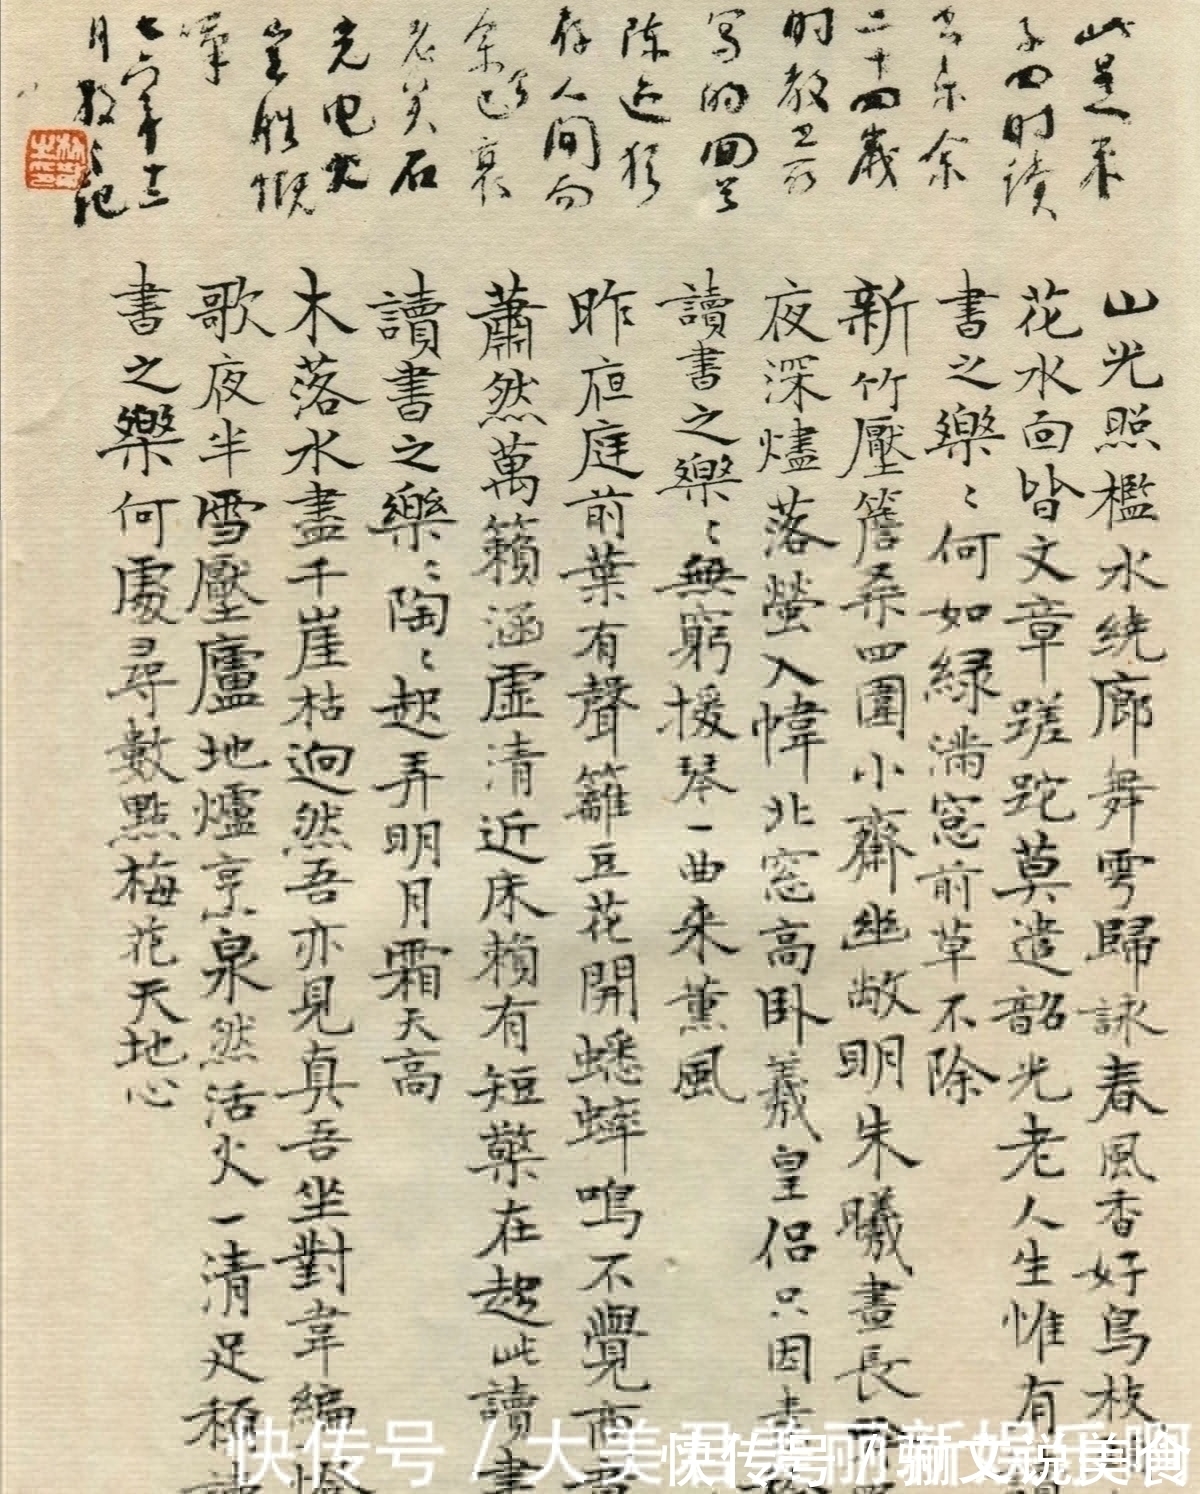 此是翠
子四时读
书乐余
二十四岁
时教卫
写的回
陈迹犹
存人间而
余已衰
老矣石
火电光
岂胜慨
叹
七六年十二
月记
山光照檻水繞廊舞雩歸詠春風香好鳥枝
花水面皆文章蹉跎莫遣韶光老人生惟有
書之樂樂何如綠滿窓前草不除
新竹壓簷桑四圍小齋幽敞明朱曦晝長
夜深燼落螢入幃北窓高卧羲皇侶只因素
讀書之樂樂無窮援琴一曲来薰風
昨夜庭前葉有聲籬豆花開蟋蟀鳴不覺商
蕭然萬籟涵虛清近床賴有短檠在趁此讀書
讀書之樂樂陶陶起弄明月霜天高
木落水盡千崖枯迥然吾亦見真吾坐對韋編
歌夜半雪壓廬地爐烹泉然活火一清足稱
書之樂何處尋數點梅花天地心
快传号 / 大美
快传号 / 骊文说美食